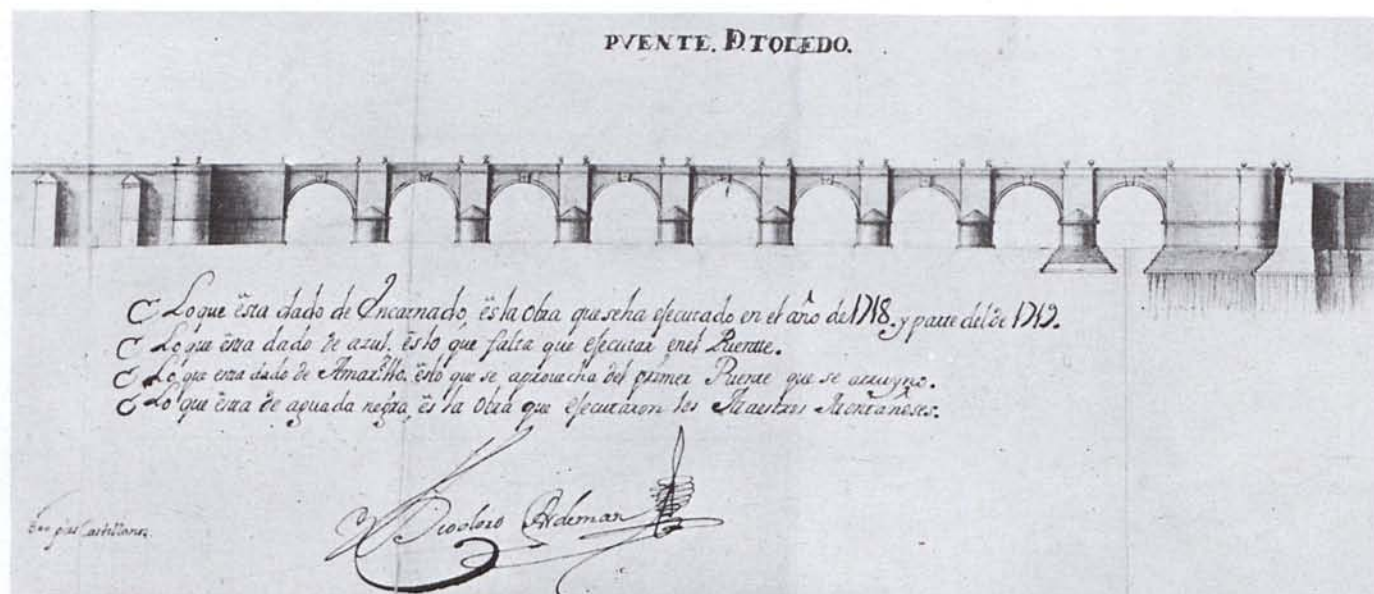 PVENTE. D TOLEDO.
Lo que ësta dado de Encarnado, ës la Obra que seha efecutado en el año de 1718. y parte del de 1719.
Lo que ësta dado de azul. ës lo que falta que efecutar enel Puente.
Lo que esta dado de Amarillo, ës lo que se aprouecha del primer Puente que se arruyno.
Lo que ësta de aguada negra, ës la Obra que efecutaron los Maestros Montañeses.
Teodoro Ardemans
pies Castellanos.